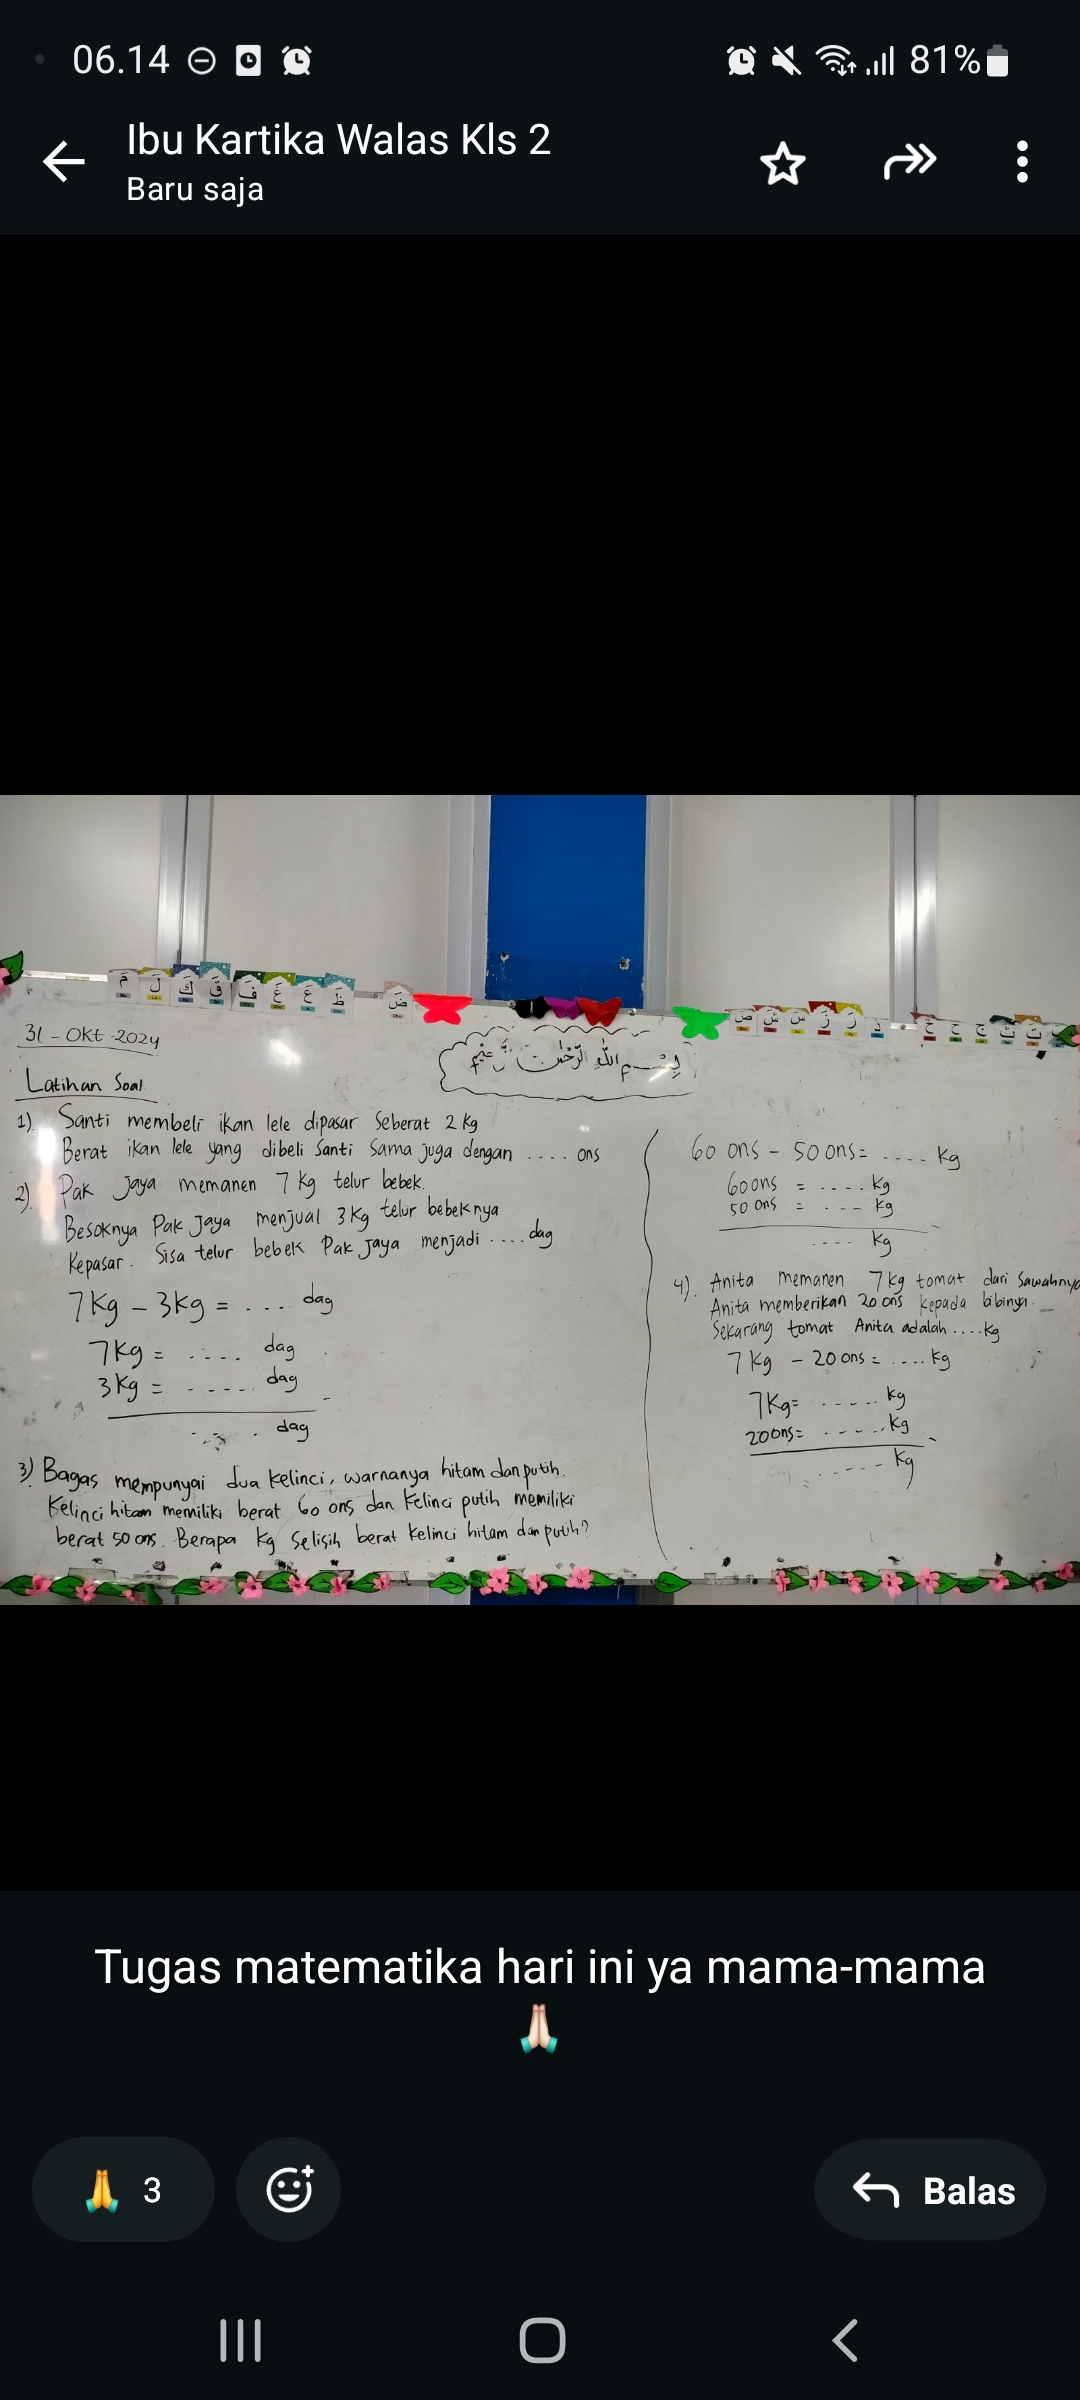 06.14
81%
Ibu Kartika Walas Kls 2
Baru saja
مَ لَ كَ قَ فَ غَ عَ ظَ ضَ صَ شَ سَ زَ رَ د خَ حَ جَ ثَ تَ
31 - Okt - 2024
Latihan Soal
1). Santi membeli ikan lele dipasar Seberat 2 kg
Berat ikan lele yang dibeli Santi Sama juga dengan .... ons
2). Pak Jaya memanen 7 kg telur bebek.
Besoknya Pak Jaya menjual 3 kg telur bebeknya
Kepasar. Sisa telur bebek Pak Jaya menjadi .... dag
7 Kg - 3 Kg = .... dag
7 Kg = ..... dag
3 Kg = ...... dag
.... dag
3) Bagas mempunyai dua kelinci, warnanya hitam dan putih.
Kelinci hitam memiliki berat 60 ons dan kelinci putih memiliki
berat 50 ons. Berapa kg Selisih berat kelinci hitam dan putih?
60 ons - 50 ons = .... kg
60 ons = ..... kg
50 ons = .... kg
.... kg
4). Anita memanen 7 kg tomat dari Sawahnya
Anita memberikan 20 ons kepada bibinya.
Sekarang tomat Anita adalah .... kg
7 kg - 20 ons = .... kg
7 Kg = ..... kg
20 ons = ..... kg
...... kg
Tugas matematika hari ini ya mama-mama
🙏🏻
🙏 3
Balas